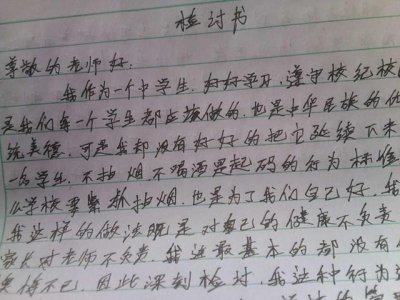 检讨书
尊敬的老师好:
我作为一个中学生,好好学习,遵守校纪校
是我们每一个学生都应该做的,也是中华民族的优
统美德,可是我却没有好好的把它延续下来
一名学生,不抽烟不喝酒是起码的行为标准
么学校要紧抓抽烟,也是为了我们自己好,我
我这样的做法既是对自己的健康不负责
家长对老师不负责,我连最基本的都没有
得不已,因此深刻检讨,我这种行为